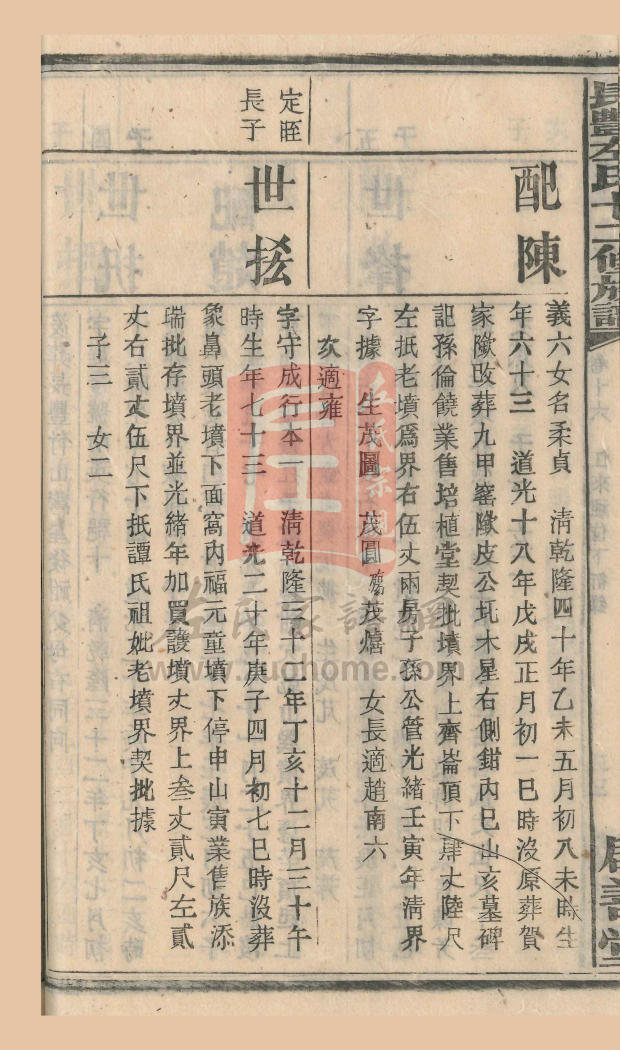 長豐左氏十二修族譜
配陳
義六女名柔貞　清乾隆四十年乙未五月初八未時生
年六十三　道光十八年戊戌正月初一巳時沒原葬賀
家隞改葬九甲窰隞皮公圫木星右側鉗內巳山亥墓碑
記孫倫饒業售培植堂契批墳界上齊崙頂下肆丈陸尺
左抵老墳爲界右伍丈兩房子孫公管光緒壬寅年清界
字據　生茂圖　茂圓　茂熺　女長適趙南六
次適雍
定眰
長子
世㧼
字守成行本一　清乾隆三十二年丁亥十二月三十午
時生年七十三　道光二十年庚子四月初七巳時沒葬
象鼻頭老墳下面窩內福元童墳下停申山寅業售族添
瑞批存墳界並光緒年加買護墳丈界上叁丈貳尺左貳
丈右貳丈伍尺下抵譚氏祖妣老墳界契批據
子三　女二
左氏家譜網
www.zuohome.com